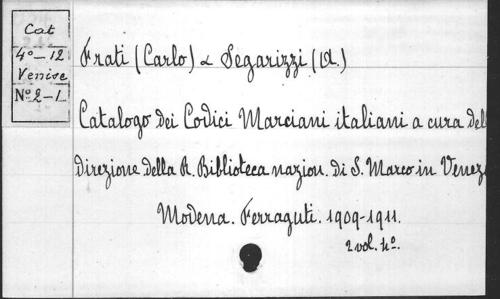 Cat
4º-12
Venise
Nº 2-1
Frati (Carlo) & Segarizzi (A.)
Catalogo dei Codici Marciani italiani a cura del
direzione della R. Biblioteca nazion. di S. Marco in Venez
Modena. Ferraguti. 1909-1911.
2 vol. 4º.